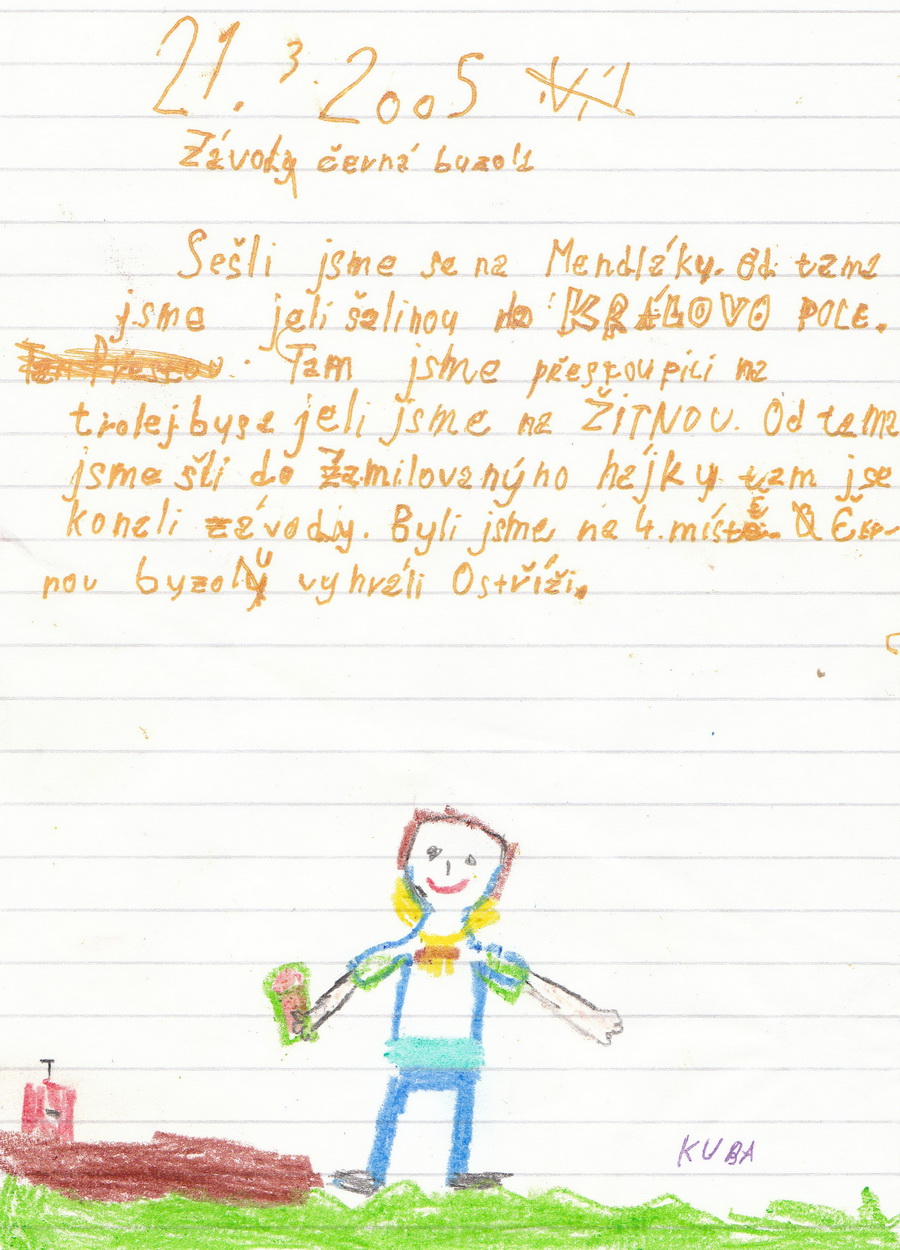 21. 3. 2005
Závody černá buzola
Sešli jsme se na Mendláky. Od tama
jsme jeli šalinou do KRÁLOVO POLE.
Tam jsme přestoupili na
trolejbysa jeli jsme na ŽITNOU. Od tama
jsme šli do Zamilovanýho hájky tam jse
konali závody. Byli jsme na 4. místě. Čer-
nou byzolů vyhráli Ostříži.
KUBA